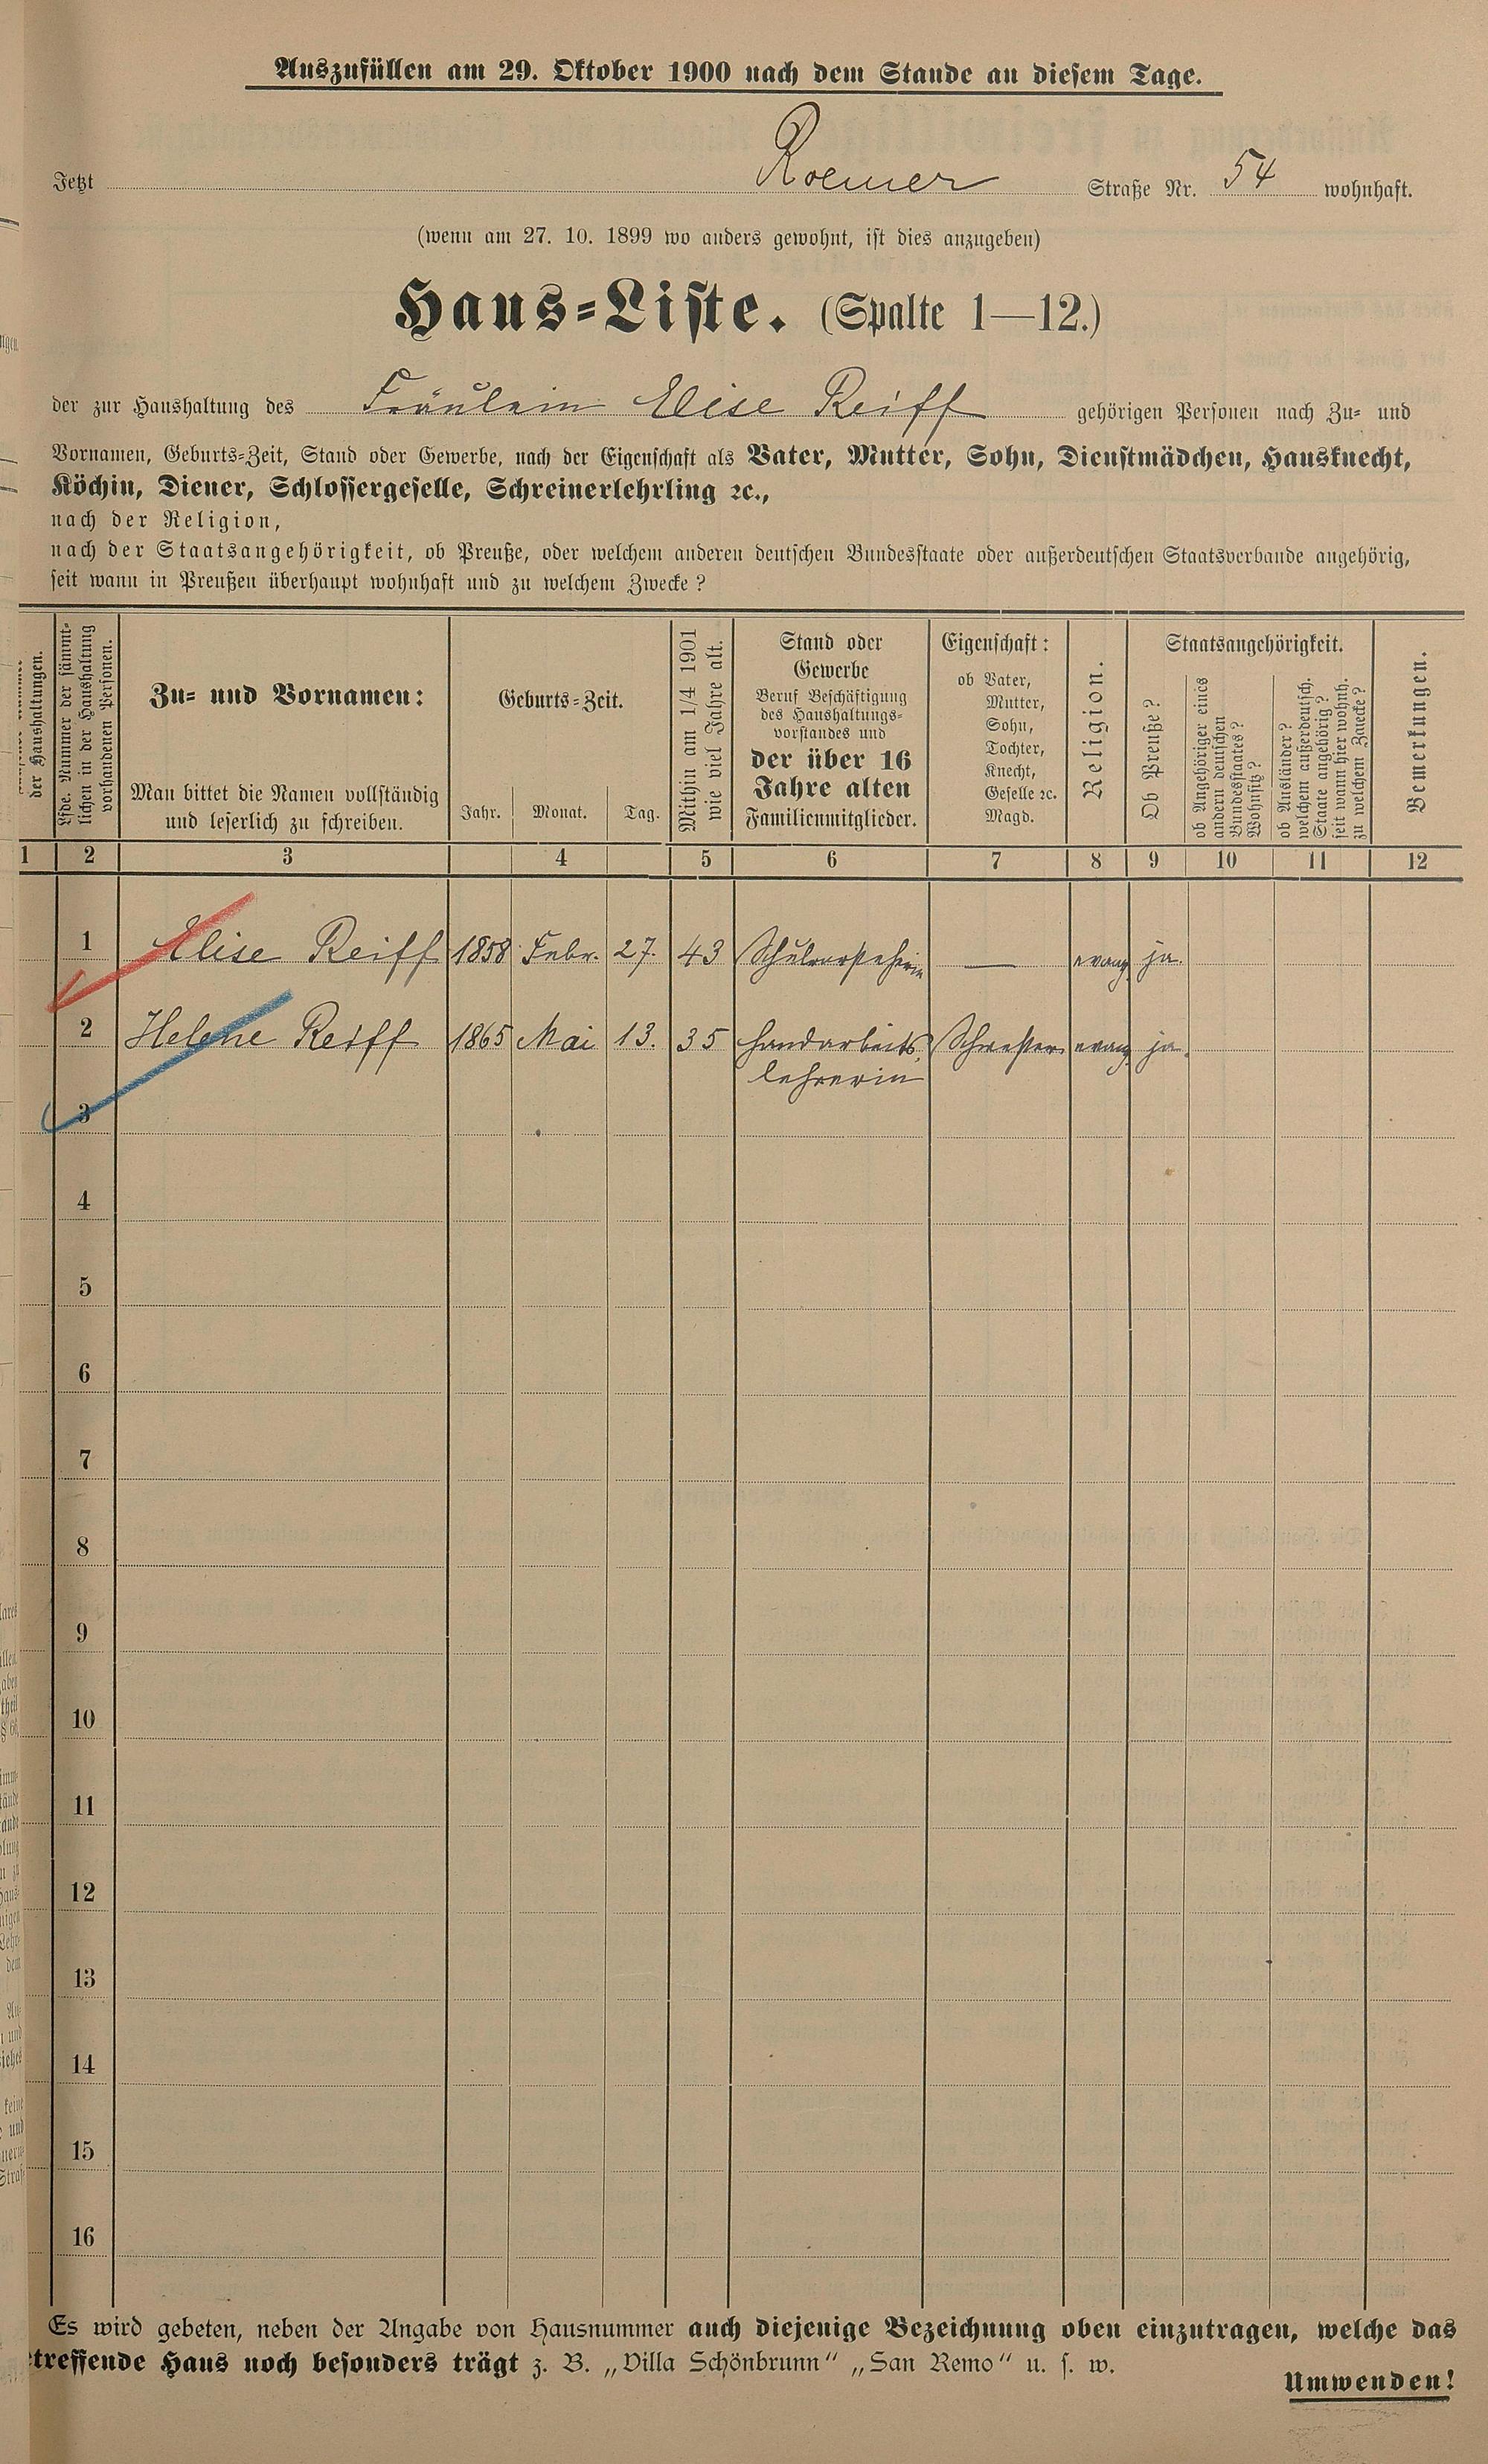 Auszufüllen am 29. Oktober 1900 nach dem Stande an diesem Tage.
Jetzt Roemer Straße Nr. 54 wohnhaft.
(wenn am 27. 10. 1899 wo anders gewohnt, ist dies anzugeben)
Haus-Liste. (Spalte 1—12.)
der zur Haushaltung des Fräulein Elise Reiff gehörigen Personen nach Zu- und
Vornamen, Geburts-Zeit, Stand oder Gewerbe, nach der Eigenschaft als Vater, Mutter, Sohn, Dienstmädchen, Hausknecht,
Köchin, Diener, Schlossergeselle, Schreinerlehrling ꝛc.,
nach der Religion,
nach der Staatsangehörigkeit, ob Preuße, oder welchem anderen deutschen Bundesstaate oder außerdeutschen Staatsverbande angehörig,
seit wann in Preußen überhaupt wohnhaft und zu welchem Zwecke?
der Haushaltungen.
Lfde. Nummer der sämmt-
lichen in der Haushaltung
vorhandenen Personen.
Zu- und Vornamen:
Man bittet die Namen vollständig
und leserlich zu schreiben.
Geburts-Zeit.
Jahr. Monat. Tag.
Mithin am 1/4 1901
wie viel Jahre alt.
Stand oder
Gewerbe
Beruf Beschäftigung
des Haushaltungs-
vorstandes und
der über 16
Jahre alten
Familienmitglieder.
Eigenschaft:
ob Vater,
Mutter,
Sohn,
Tochter,
Knecht,
Geselle ꝛc.
Magd.
Religion.
Staatsangehörigkeit.
Ob Preuße?
ob Angehöriger eines
andern deutschen
Bundesstaates?
Wohnsitz?
ob Ausländer?
welchem außerdeutsch.
Staate angehörig?
seit wann hier wohnh.
zu welchem Zwecke?
Bemerkungen.
1 2 3 4 5 6 7 8 9 10 11 12
1 Elise Reiff 1858 Febr. 27. 43 Schulvorsteherin — evang. ja.
2 Helene Reiff 1865 Mai 13. 35 Handarbeits- Schwester evang. ja.
lehrerin
3
4
5
6
7
8
9
10
11
12
13
14
15
16
Es wird gebeten, neben der Angabe von Hausnummer auch diejenige Bezeichnung oben einzutragen, welche das
treffende Haus noch besonders trägt z. B. „Villa Schönbrunn" „San Remo" u. s. w.
Umwenden!